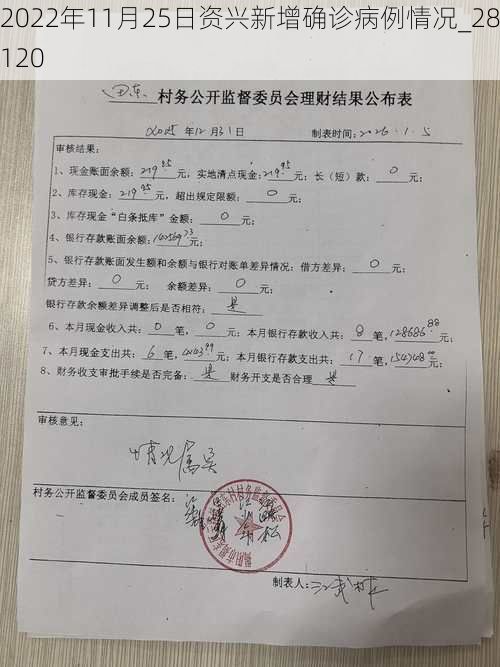 2022年11月25日资兴新增确诊病例情况_28
120
村务公开监督委员会理财结果公布表
2025 年12月31日 制表时间:2026.1.5
审核结果:
1、现金账面余额:219.95元,实地清点现金:219.95元;长(短)款:0元;
2、库存现金:219.95元,超出规定限额:0元;
3、库存现金“白条抵库”金额:0元;
4、银行存款账面余额:元;
5、银行存款账面发生额和余额与银行对账单差异情况:借方差异:0元;
贷方差异:0元 余额差异:0元;
银行存款余额差异调整后是否相符:是
6、本月现金收入共:0笔,0元;本月银行存款收入共:8笔,128686.88元
7、本月现金支出共:6笔,元;本月银行存款支出共:17笔,元
8、财务收支审批手续是否完备:是 财务开支是否合理 是
审核意见:
情况属实
村务公开监督委员会成员签名:
制表人: